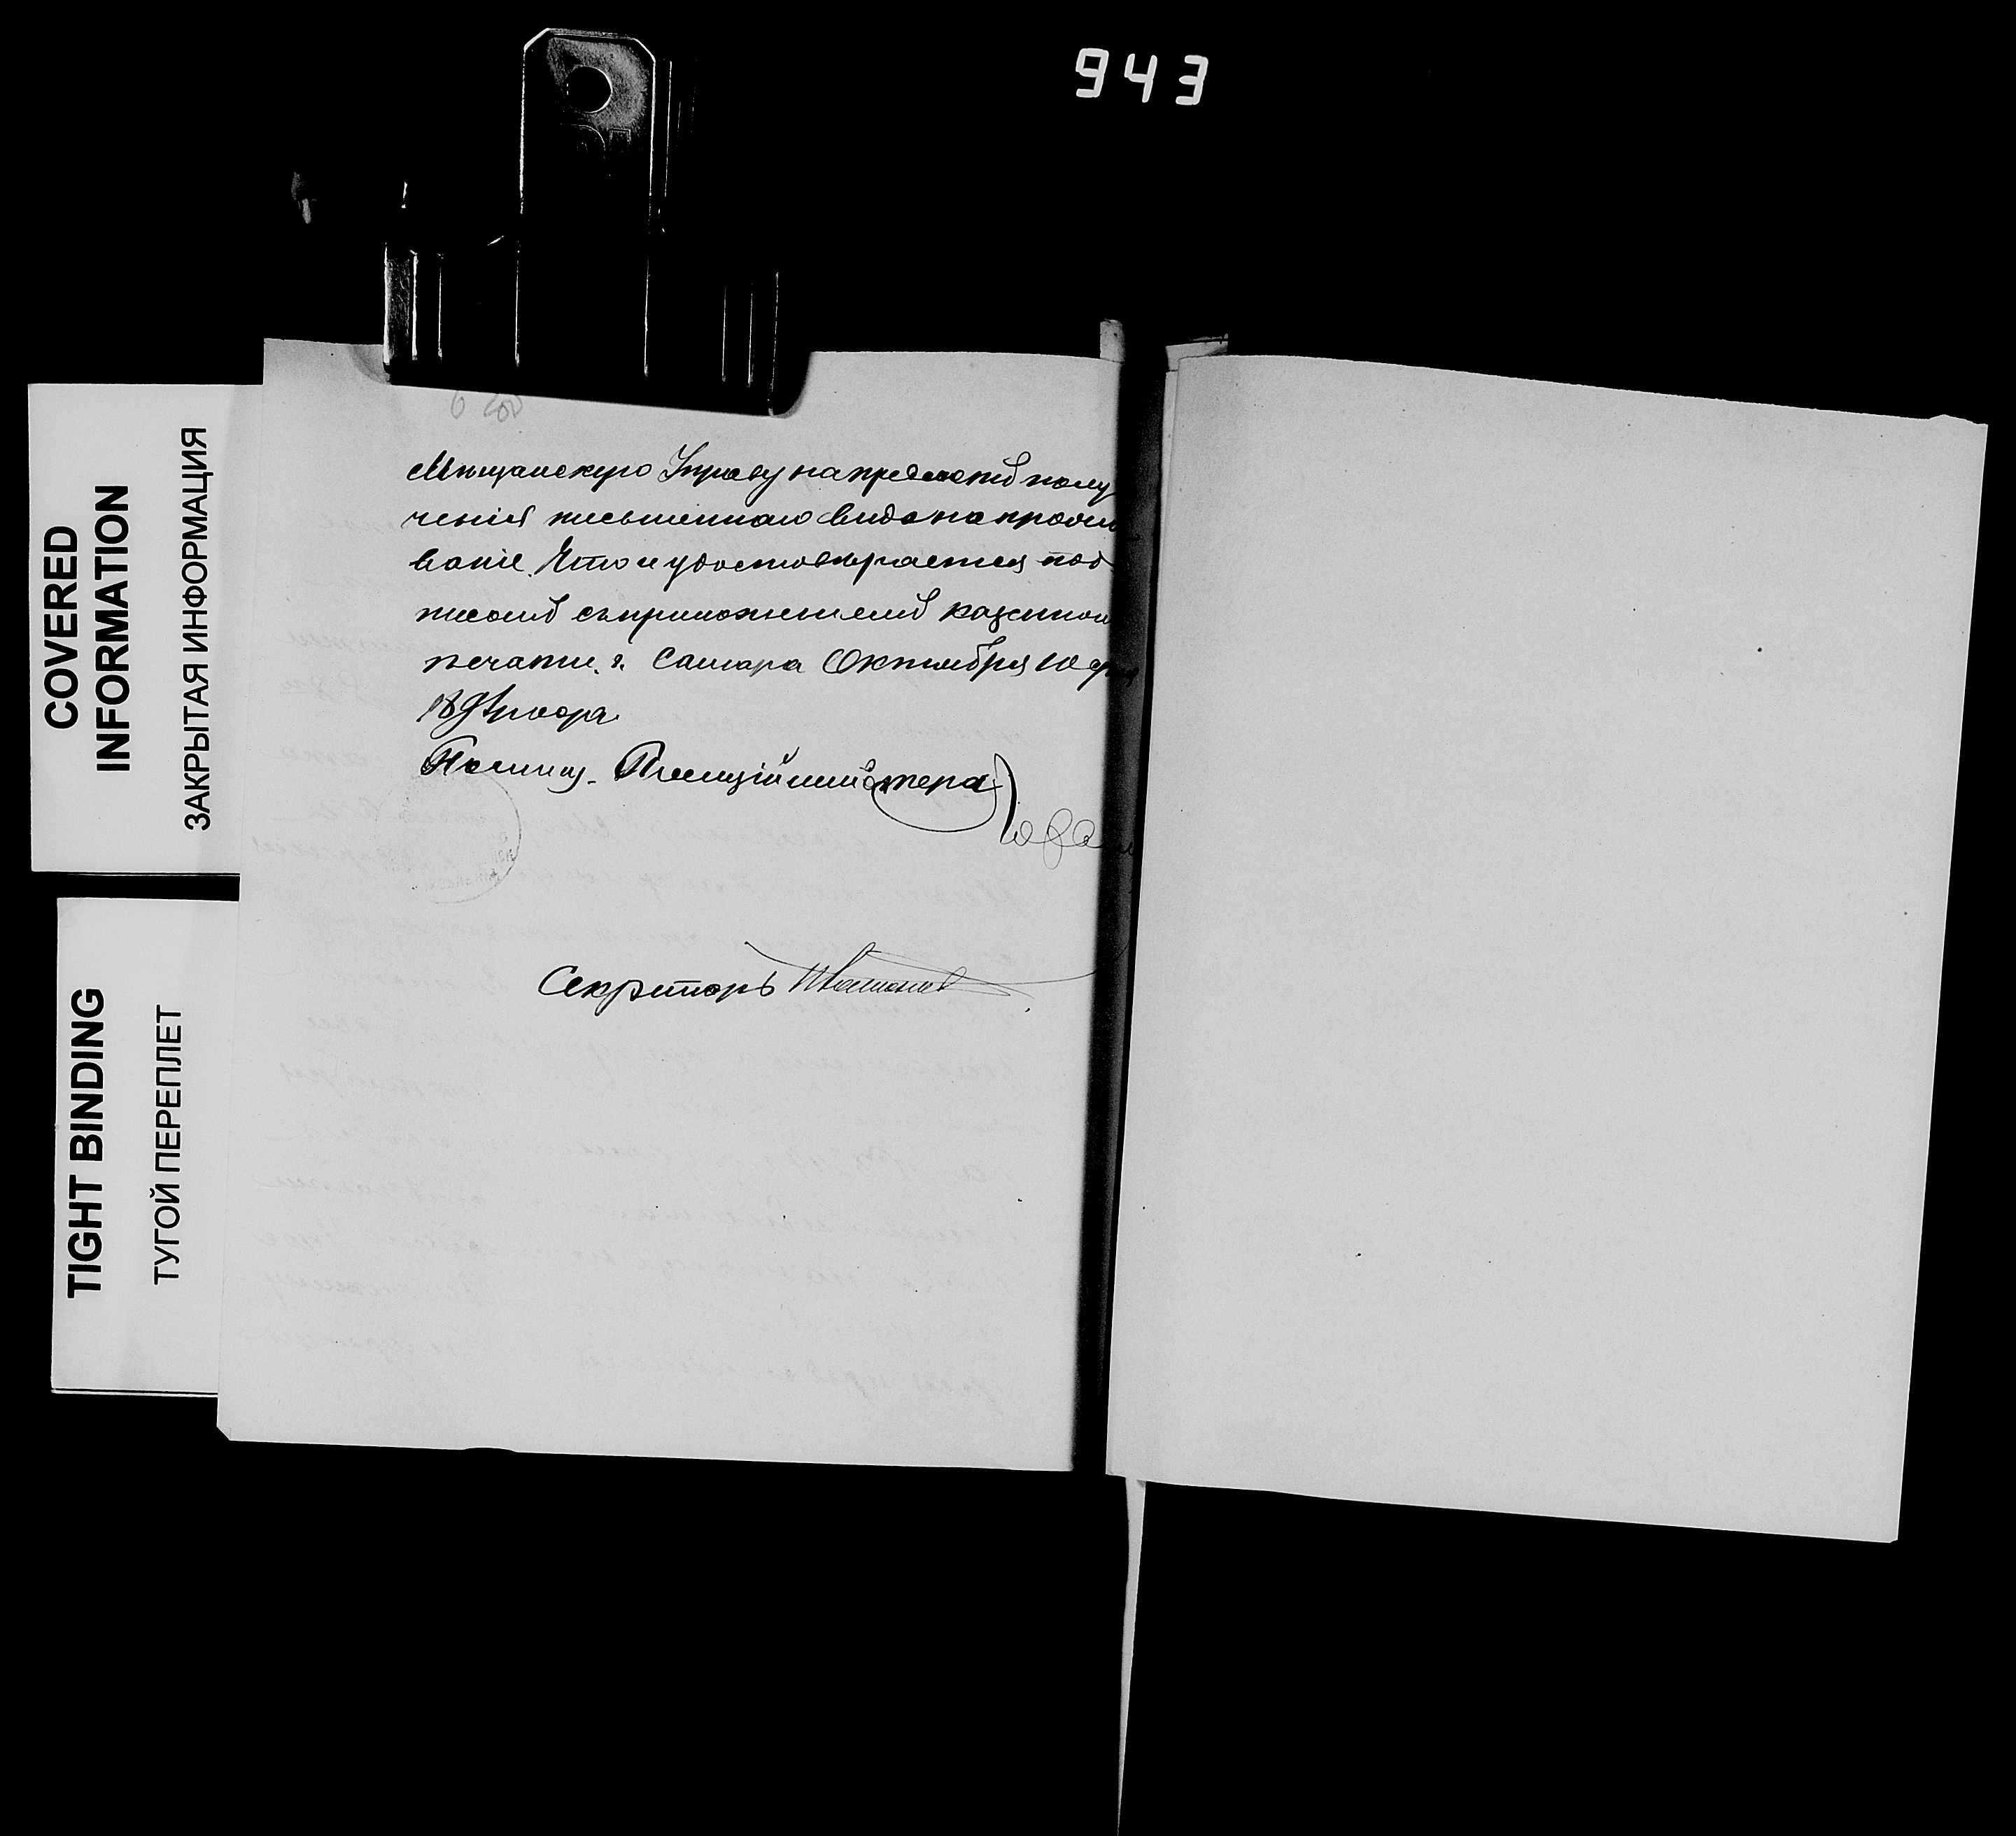 943
COVERED
INFORMATION
ЗАКРЫТАЯ ИНФОРМАЦИЯ
TIGHT BINDING
ТУГОЙ ПЕРЕПЛЕТ
Мѣщанскую Управу на предметъ полу
ченія письменнаго вида на прожи
ваніе. Что и удостовѣряется под
писомъ съ приложеніемъ казенной
печати. г. Самара Октября 10 дня
189 года.
Помощ. Полиціймейстера
Секретарь